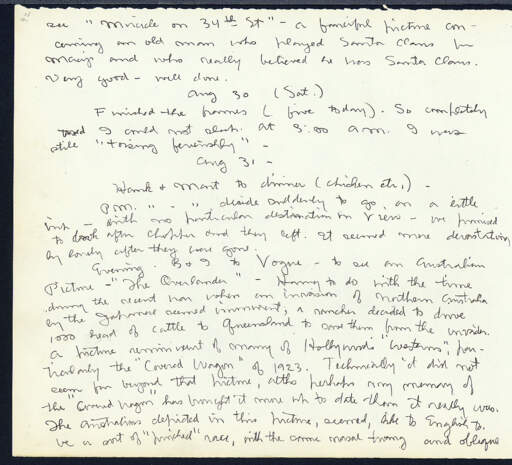 see "Miracle on 34th St" - a fanciful picture con-
cerning an old man who played Santa Claus for
Macy's and who really believed he was Santa Claus.
Very good - well done.
Aug 30 (Sat.)
Finished the frames (five today). So completely
tired I could not sleep. At 3:00 a.m. I was
still "tossing feverishly" -
Aug 31 -
Hank & Mart to dinner (chicken etc.) -
P.M. " - " decide suddenly to go on a little
trip - with no particular destination in view - we promised
to look after Chopper and they left. It seemed more devastatingly
lonely after they were gone.
Evening. B & I to Vogue - to see an Australian
Picture - "The Overlander" - Having to do with the time
during the recent war when an invasion of northern Australia
by the Japanese seemed imminent, a rancher decided to drive
1000 head of cattle to Queensland to save them from the invader.
A picture reminiscent of many of Hollywood's "westerns", par-
ticularly the "Covered Wagon" of 1923. Technically it did not
seem far beyond that picture, altho perhaps my memory of
the "Covered Wagon" has brought it more up to date than it really was.
The Australians depicted in this picture, seemed, like the English, to
be a sort of "pinched" race, with the same nasal twang and oblique